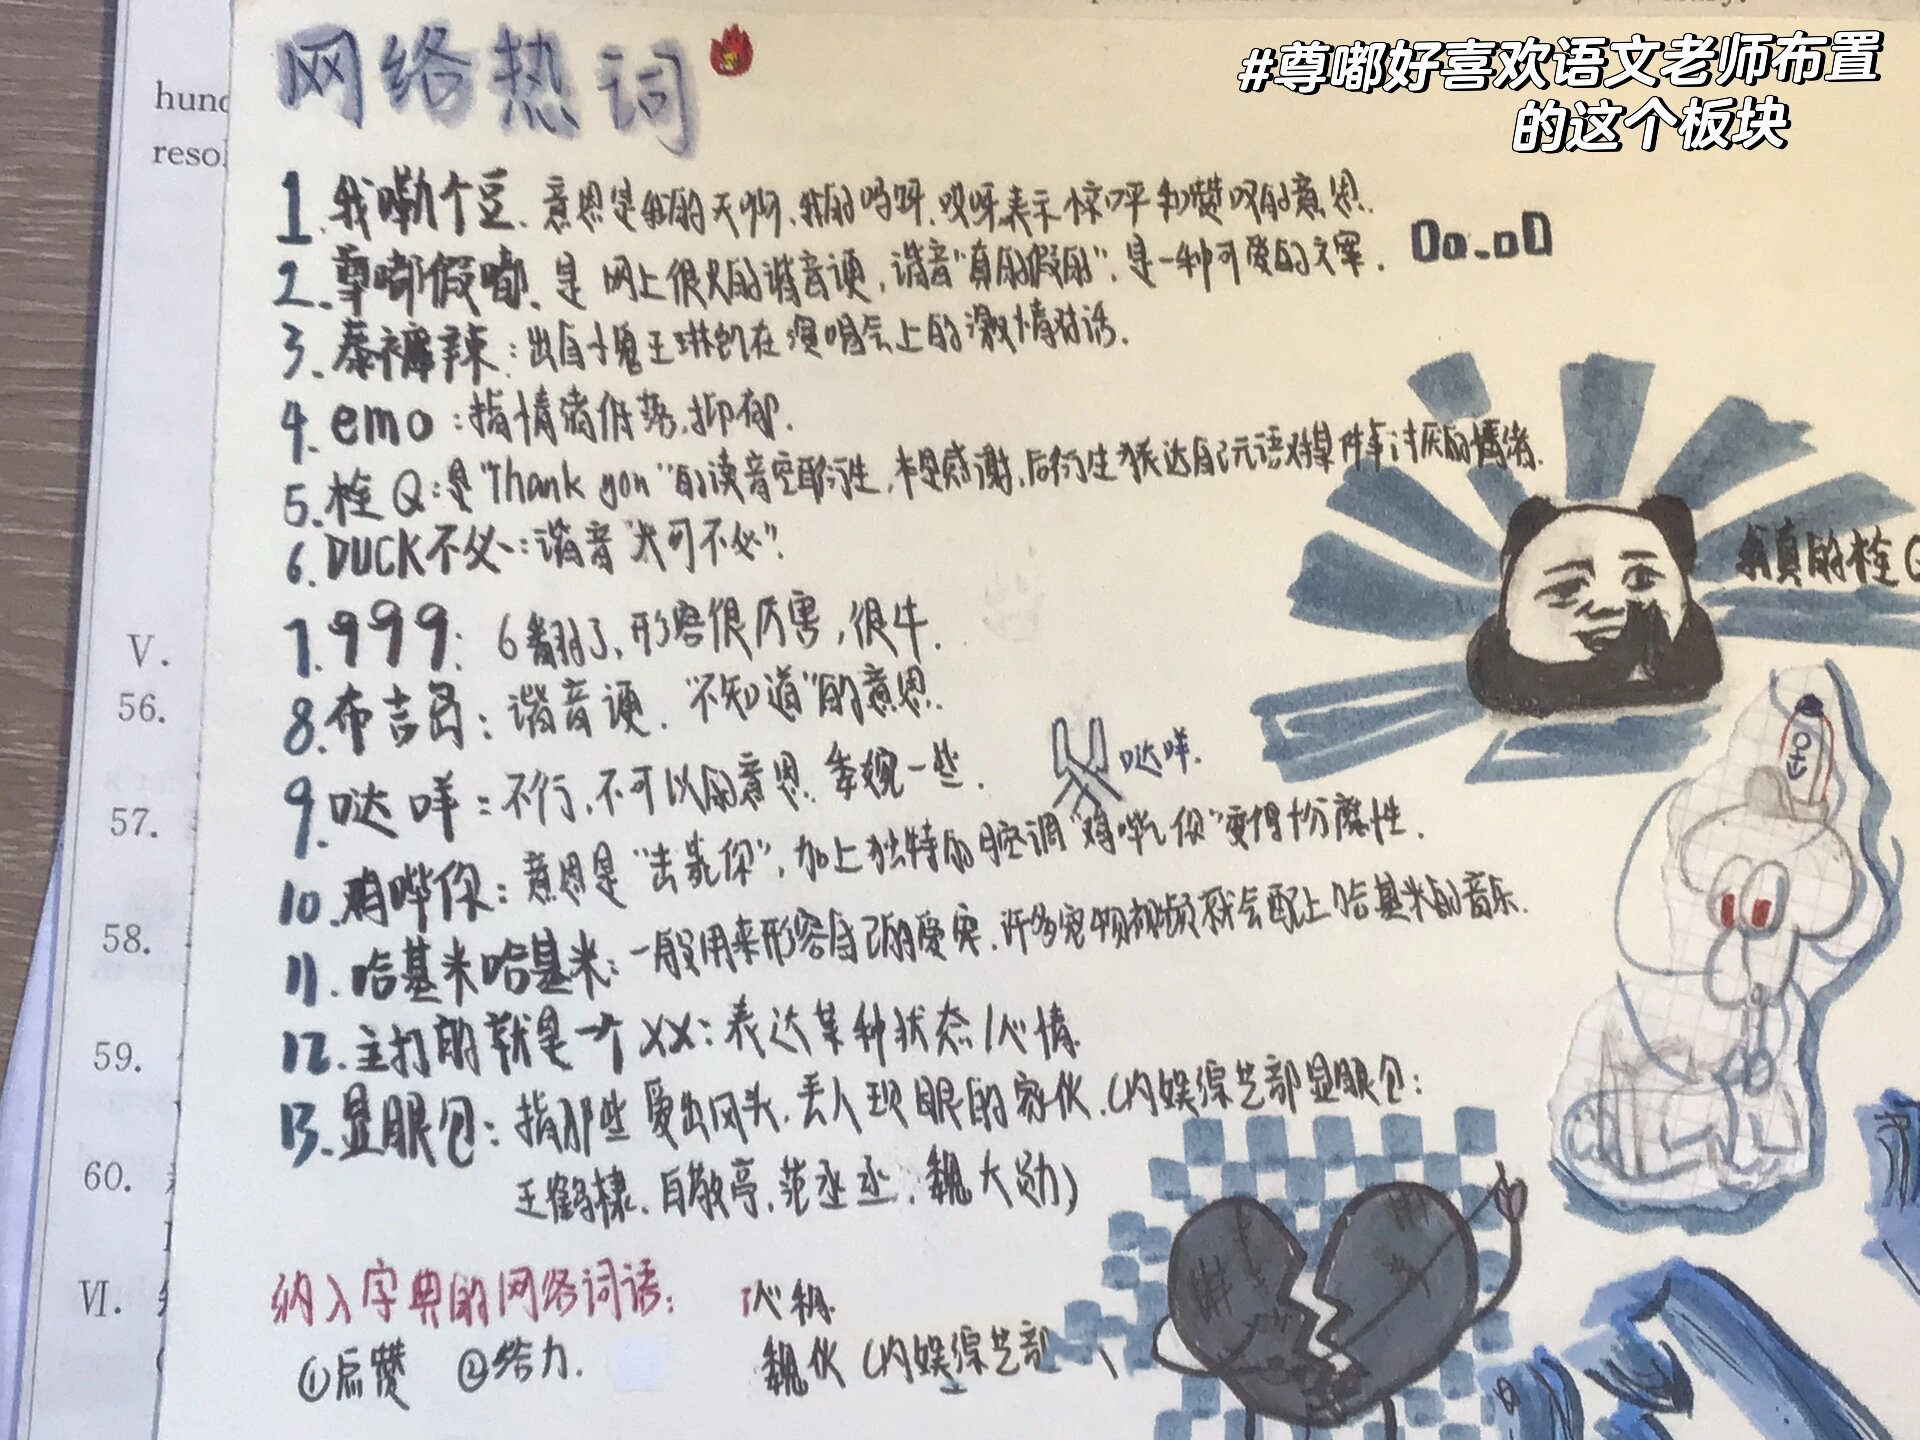 #尊嘟好喜欢语文老师布置
的这个板块
网络热词
1.我嘞个豆、意思是我的天啊、我的妈呀、哎呀表示惊呼和赞叹的意思.
2.尊嘟假嘟、是网上很火的谐音梗,谐音"真的假的",是一种可爱的文案. Oo.oO
3.泰裤辣:出自小鬼王琳凯在演唱会上的激情对话.
4.emo:指情绪低落、抑郁.
5.栓Q:是"Thank you"的读音空耳衍生,本是感谢,后衍生为表达自己无语对某件事讨厌的情绪.
我真的栓Q
6.DUCK不必:谐音"大可不必".
7.999:6翻了,形容很厉害,很牛.
8.布吉岛:谐音梗."不知道"的意思.
9.哒咩:不行,不可以的意思.委婉一些.
哒咩.
10.鸡哔你:意思是"击毙你",加上独特的腔调"鸡哔你"变得十分魔性.
11.哈基米哈基米:一般用来形容自己的爱宠.许多宠物视频就会配上哈基米的音乐.
12.主打的就是一个XX:表达某种状态/心情.
13.显眼包:指那些爱出风头,丢人现眼的家伙.(内娱综艺部显眼包:
王鹤棣、白敬亭、范丞丞、魏大勋)
纳入字典的网络词语:
①点赞 ②给力.
心
(内娱综艺部
hund
resol
V.
56.
57.
58.
59.
60.
VI.